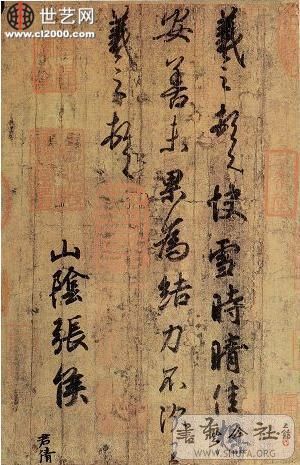 世艺网
www.cl2000.com
羲之頓首快雪時晴佳
安善未果為結力不次
羲之頓首
山陰張侯
君倩
書藝公社
WWW.SHUFA.ORG